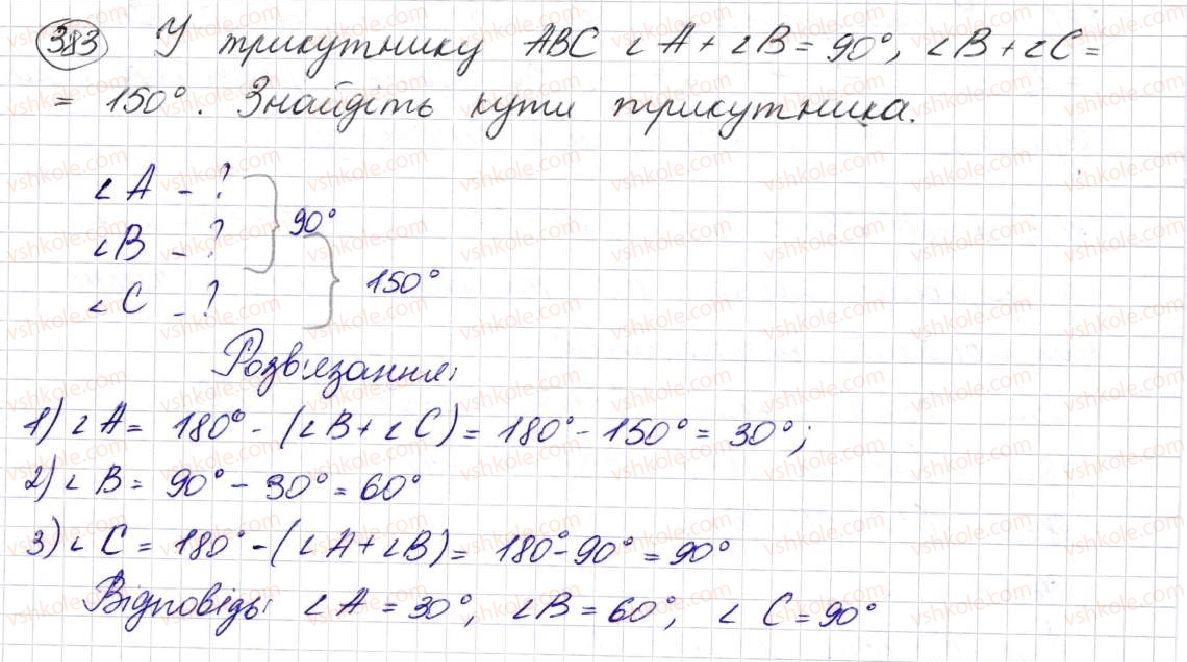 383 У трикутнику ABC ∠A + ∠B = 90°, ∠B + ∠C =
= 150°. Знайдіть кути трикутника.
∠A - ?
90°
∠B - ?
150°
∠C - ?
Розв'язання:
1) ∠A = 180° - (∠B + ∠C) = 180° - 150° = 30°;
2) ∠B = 90° - 30° = 60°
3) ∠C = 180° - (∠A + ∠B) = 180° - 90° = 90°
Відповідь: ∠A = 30°, ∠B = 60°, ∠C = 90°